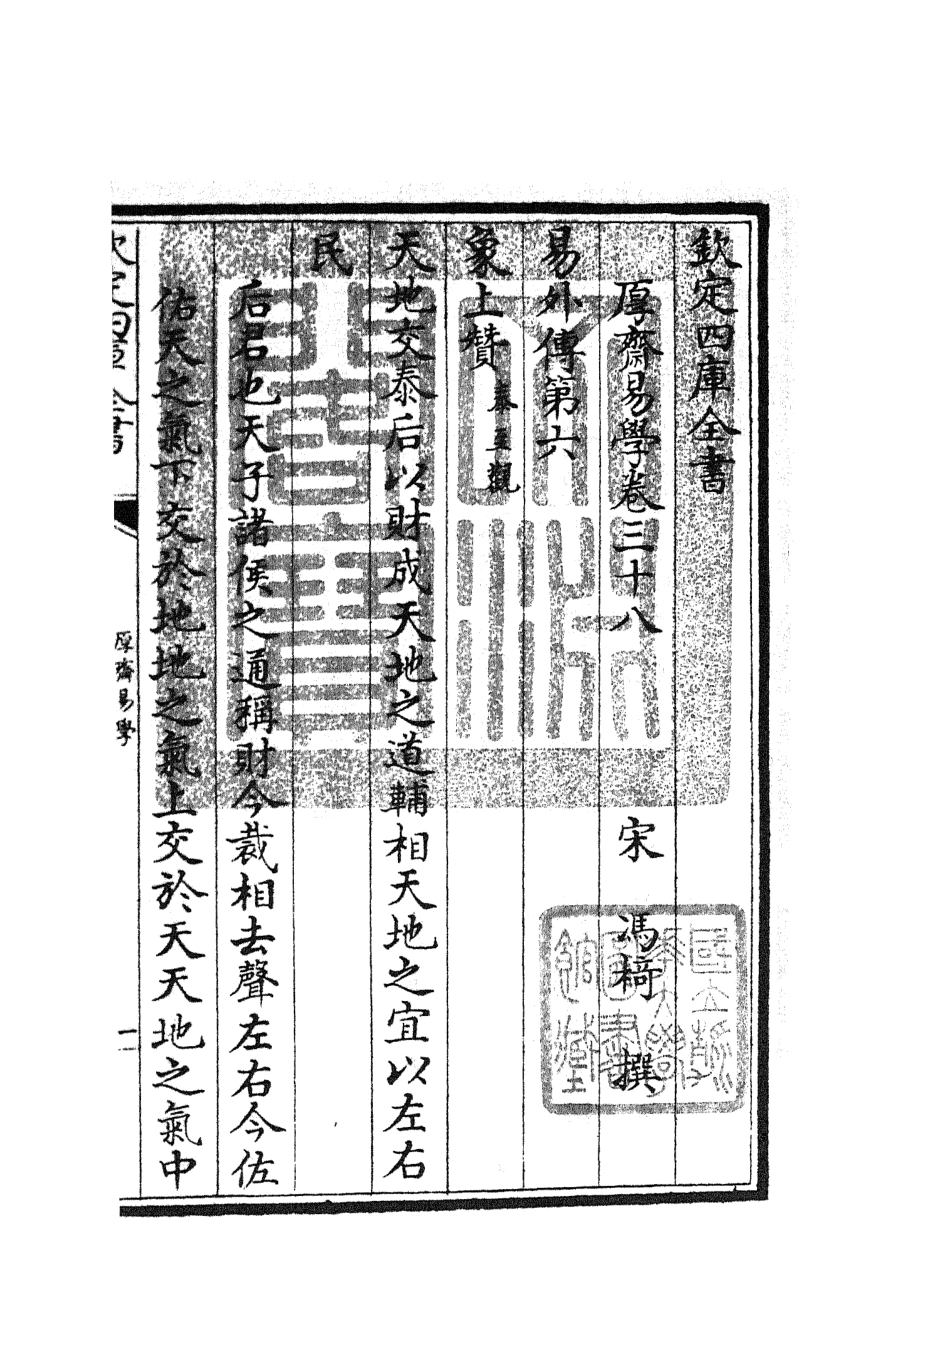 欽定四庫全書
厚齋易學卷三十八
宋 馮椅 撰
易外傳第六
象上贊 泰至觀
天地交泰后以財成天地之道輔相天地之宜以左右
民
后君也天子諸侯之通稱財今裁相去聲左右今佐
佑天之氣下交於地地之氣上交於天天地之氣中
欽定四庫全書
厚齋易學
一